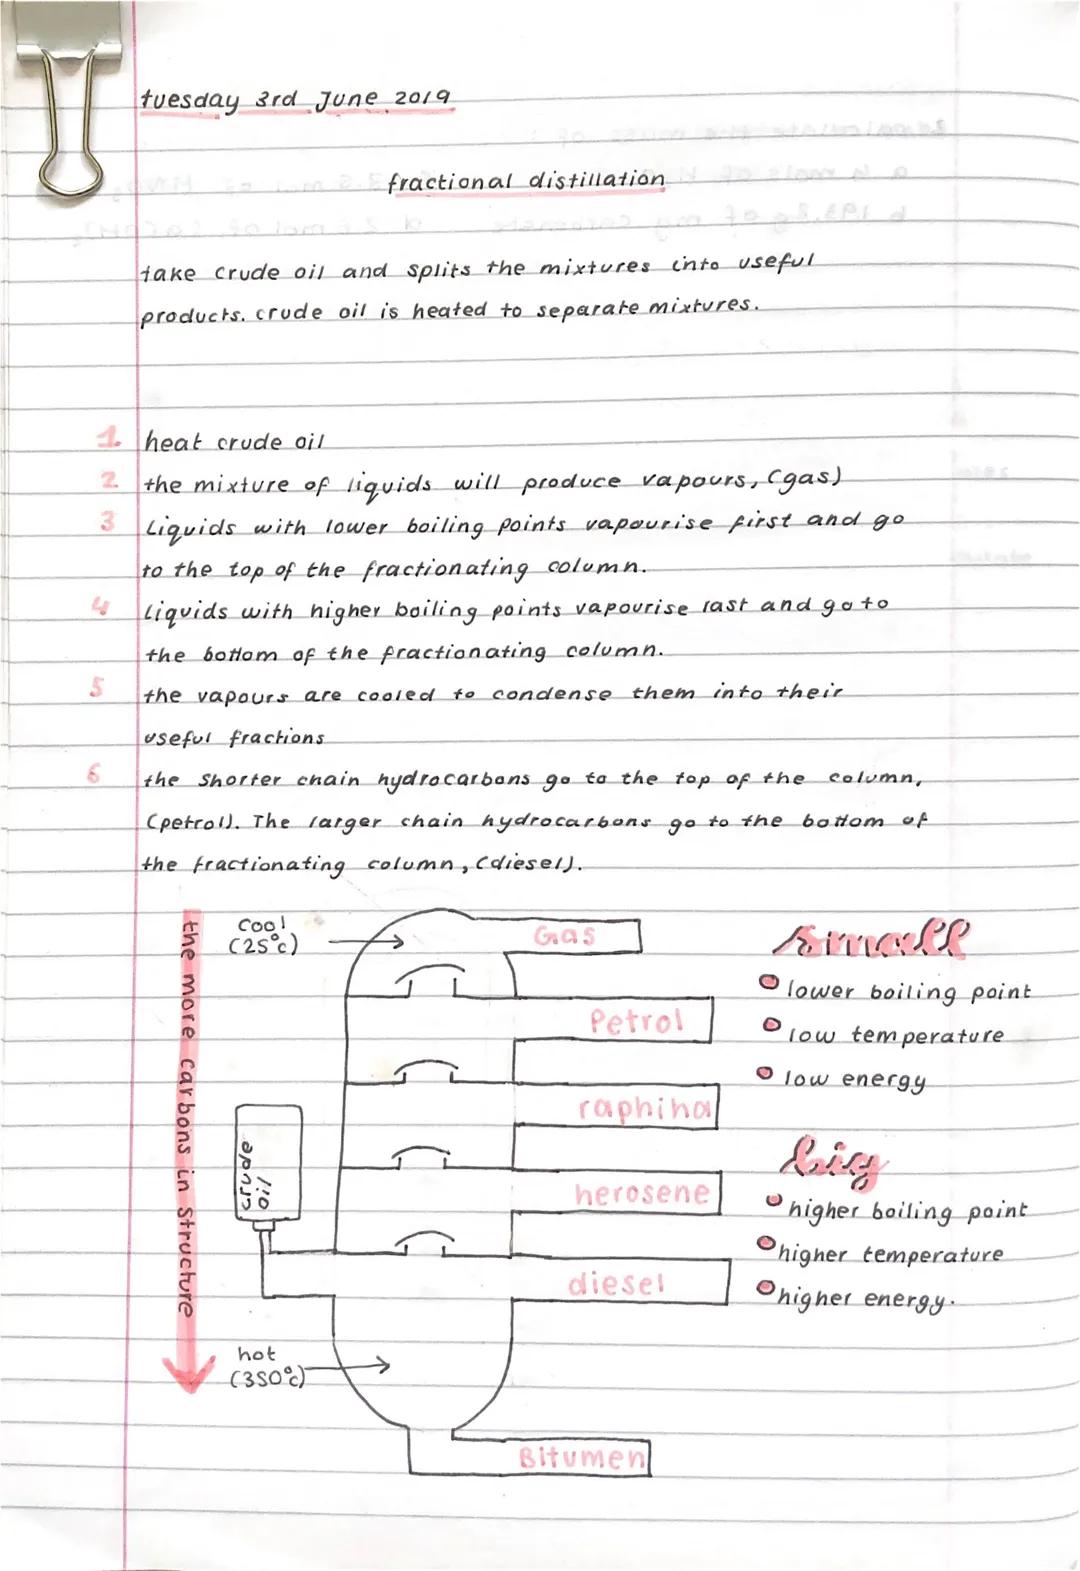 tuesday 3rd June 2019
fractional distillation
take crude oil and splits the mixtures into useful
products. crude oil is heated to separate mixtures.
1. heat crude oil
2. the mixture of liquids will produce vapours, (gas)
3 Liquids with lower boiling points vapourise first and go
to the top of the fractionating column.
4 Liquids with higher boiling points vapourise last and go to
the bottom of the fractionating column.
5 the vapours are cooled to condense them into their
useful fractions
6 the shorter chain hydrocarbons go to the top of the column,
(petrol). The larger chain hydrocarbons go to the bottom of
the fractionating column, (diesel).
the more carbons in structure
cool
(25°c)
Gas
Petrol
raphiha
herosene
diesel
Bitumen
crude
oil
hot
(350°c)
small
lower boiling point
low temperature
low energy
big
higher boiling point
higher temperature
higher energy.